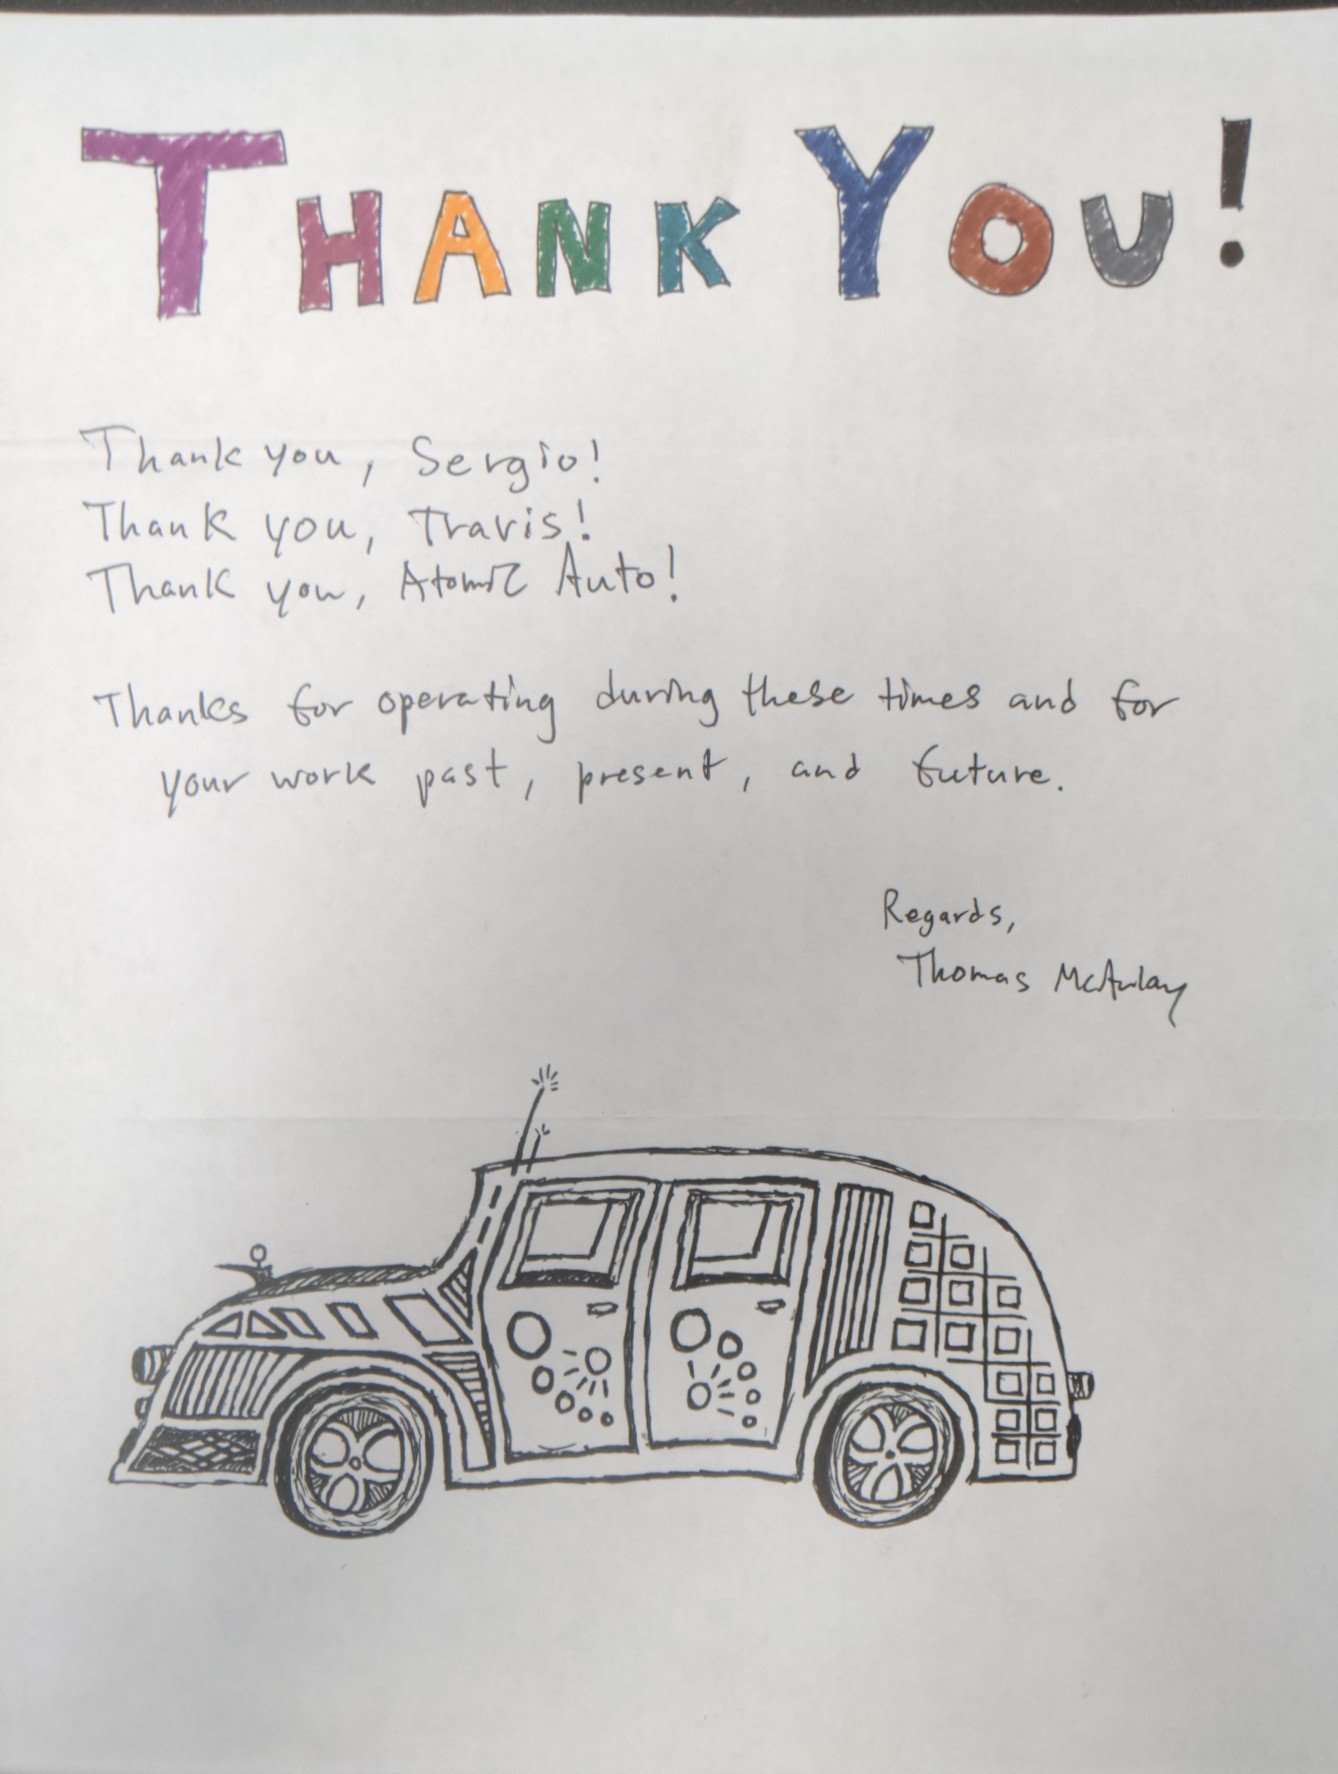 THANK YOU!
Thank you, Sergio!
Thank you, Travis!
Thank you, Atomic Auto!
Thanks for operating during these times and for
your work past, present, and future.
Regards,
Thomas McAulay